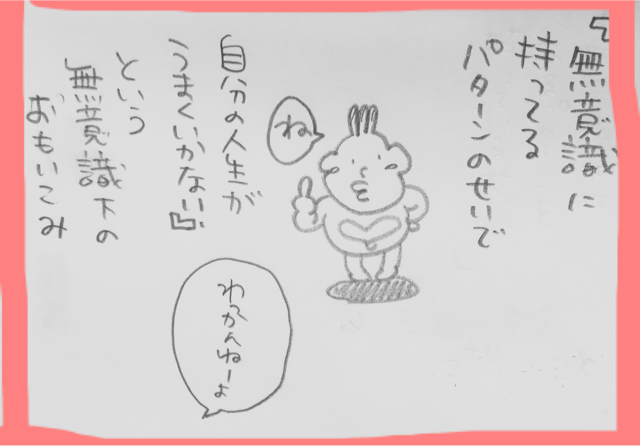 「無意識に
持ってる
パターンのせいで
ね
自分の人生が
うまくいかない」
という
無意識下の
おもいこみ
わかんねーよ